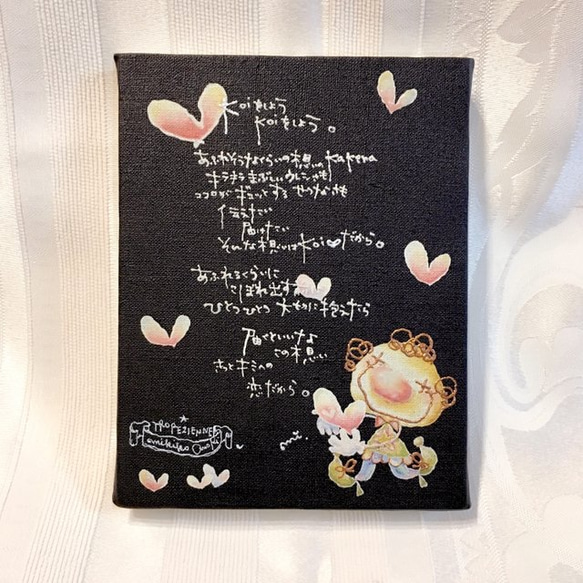 Koiをしよう
Koiをしよう。
あふれそうなくらいの想いのKakera
キラキラまぶしいウレシサも
ココロがギュッとする せつなさも
伝えたい
届けたい
そんな想いはKoi♥だから。
あふれるくらいに
こぼれ出す前に
ひとつひとつ 大切に抱えたら
届くといいな
この想い
きっとキミへの
恋だから。
TROPEZIENNE